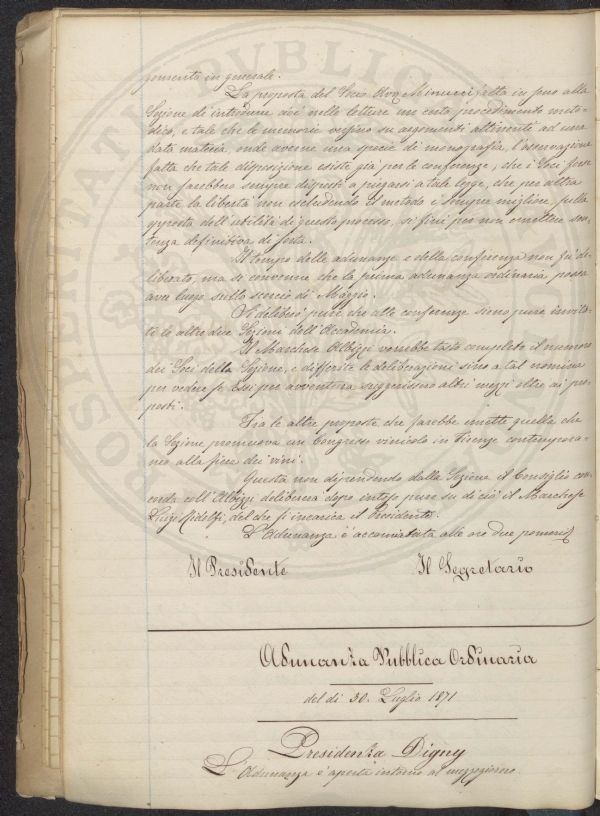 generita in generale.
La proposta del Socio Avv. Minucci fatta in seno alla
Sezione di introdurre cioè nelle letture un certo procedimento meto-
dico, e tale che le memorie versino su argomenti attinenti ad una
data materia onde averne una specie di monografia, l'osservazione
fatta che tale disposizione esiste già per le conferenze, che i Soci forse
non sarebbero sempre disposti a piegarsi a tale legge, che per altra
parte la libertà non escludendo il metodo è sempre migliore, sulla
proposta dell'utilità di questo processo, si finì per non emettere sen-
tenza definitiva di sorta.
Il tempo delle adunanze e della conferenza non fu de-
liberato, ma si convenne che la prima adunanza ordinaria possa
aver luogo sullo scorcio di Maggio.
Si deliberò pure che alle conferenze sieno pure invita-
te le altre due Sezioni dell'Accademia.
Il Marchese Albizzi vorrebbe tosto completo il numero
dei Soci della Sezione, e differite le deliberazioni sino a tal nomina
per vedere se Essi per avventura suggerissero altri mezzi oltre ai pro-
posti.
Fra le altre proposte che farebbe mette quella che
la Sezione promuova un Congresso vinicolo in Firenze contempora-
neo alla fiera dei vini.
Questa non dipendendo dalla Sezione il Consiglio con-
corda coll'Albizzi delibererà dopo inteso pure su di ciò il Marchese
Luigi Ridolfi, del che si incarica il Presidente.
L'Adunanza è accomiatata alle ore due pomerid.
Il Presidente Il Segretario
Adunanza Pubblica Ordinaria
del dì 30. Luglio 1871
Presidenza Digny
L'Adunanza è aperta intorno al mezzogiorno.